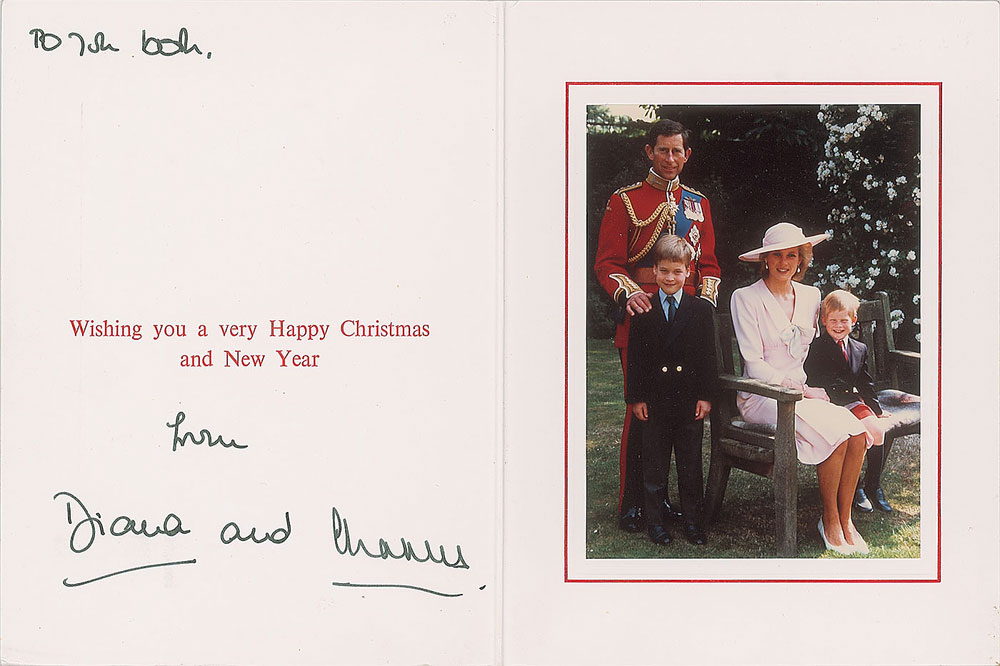 To you both,
Wishing you a very Happy Christmas
and New Year
from
Diana and Charles.